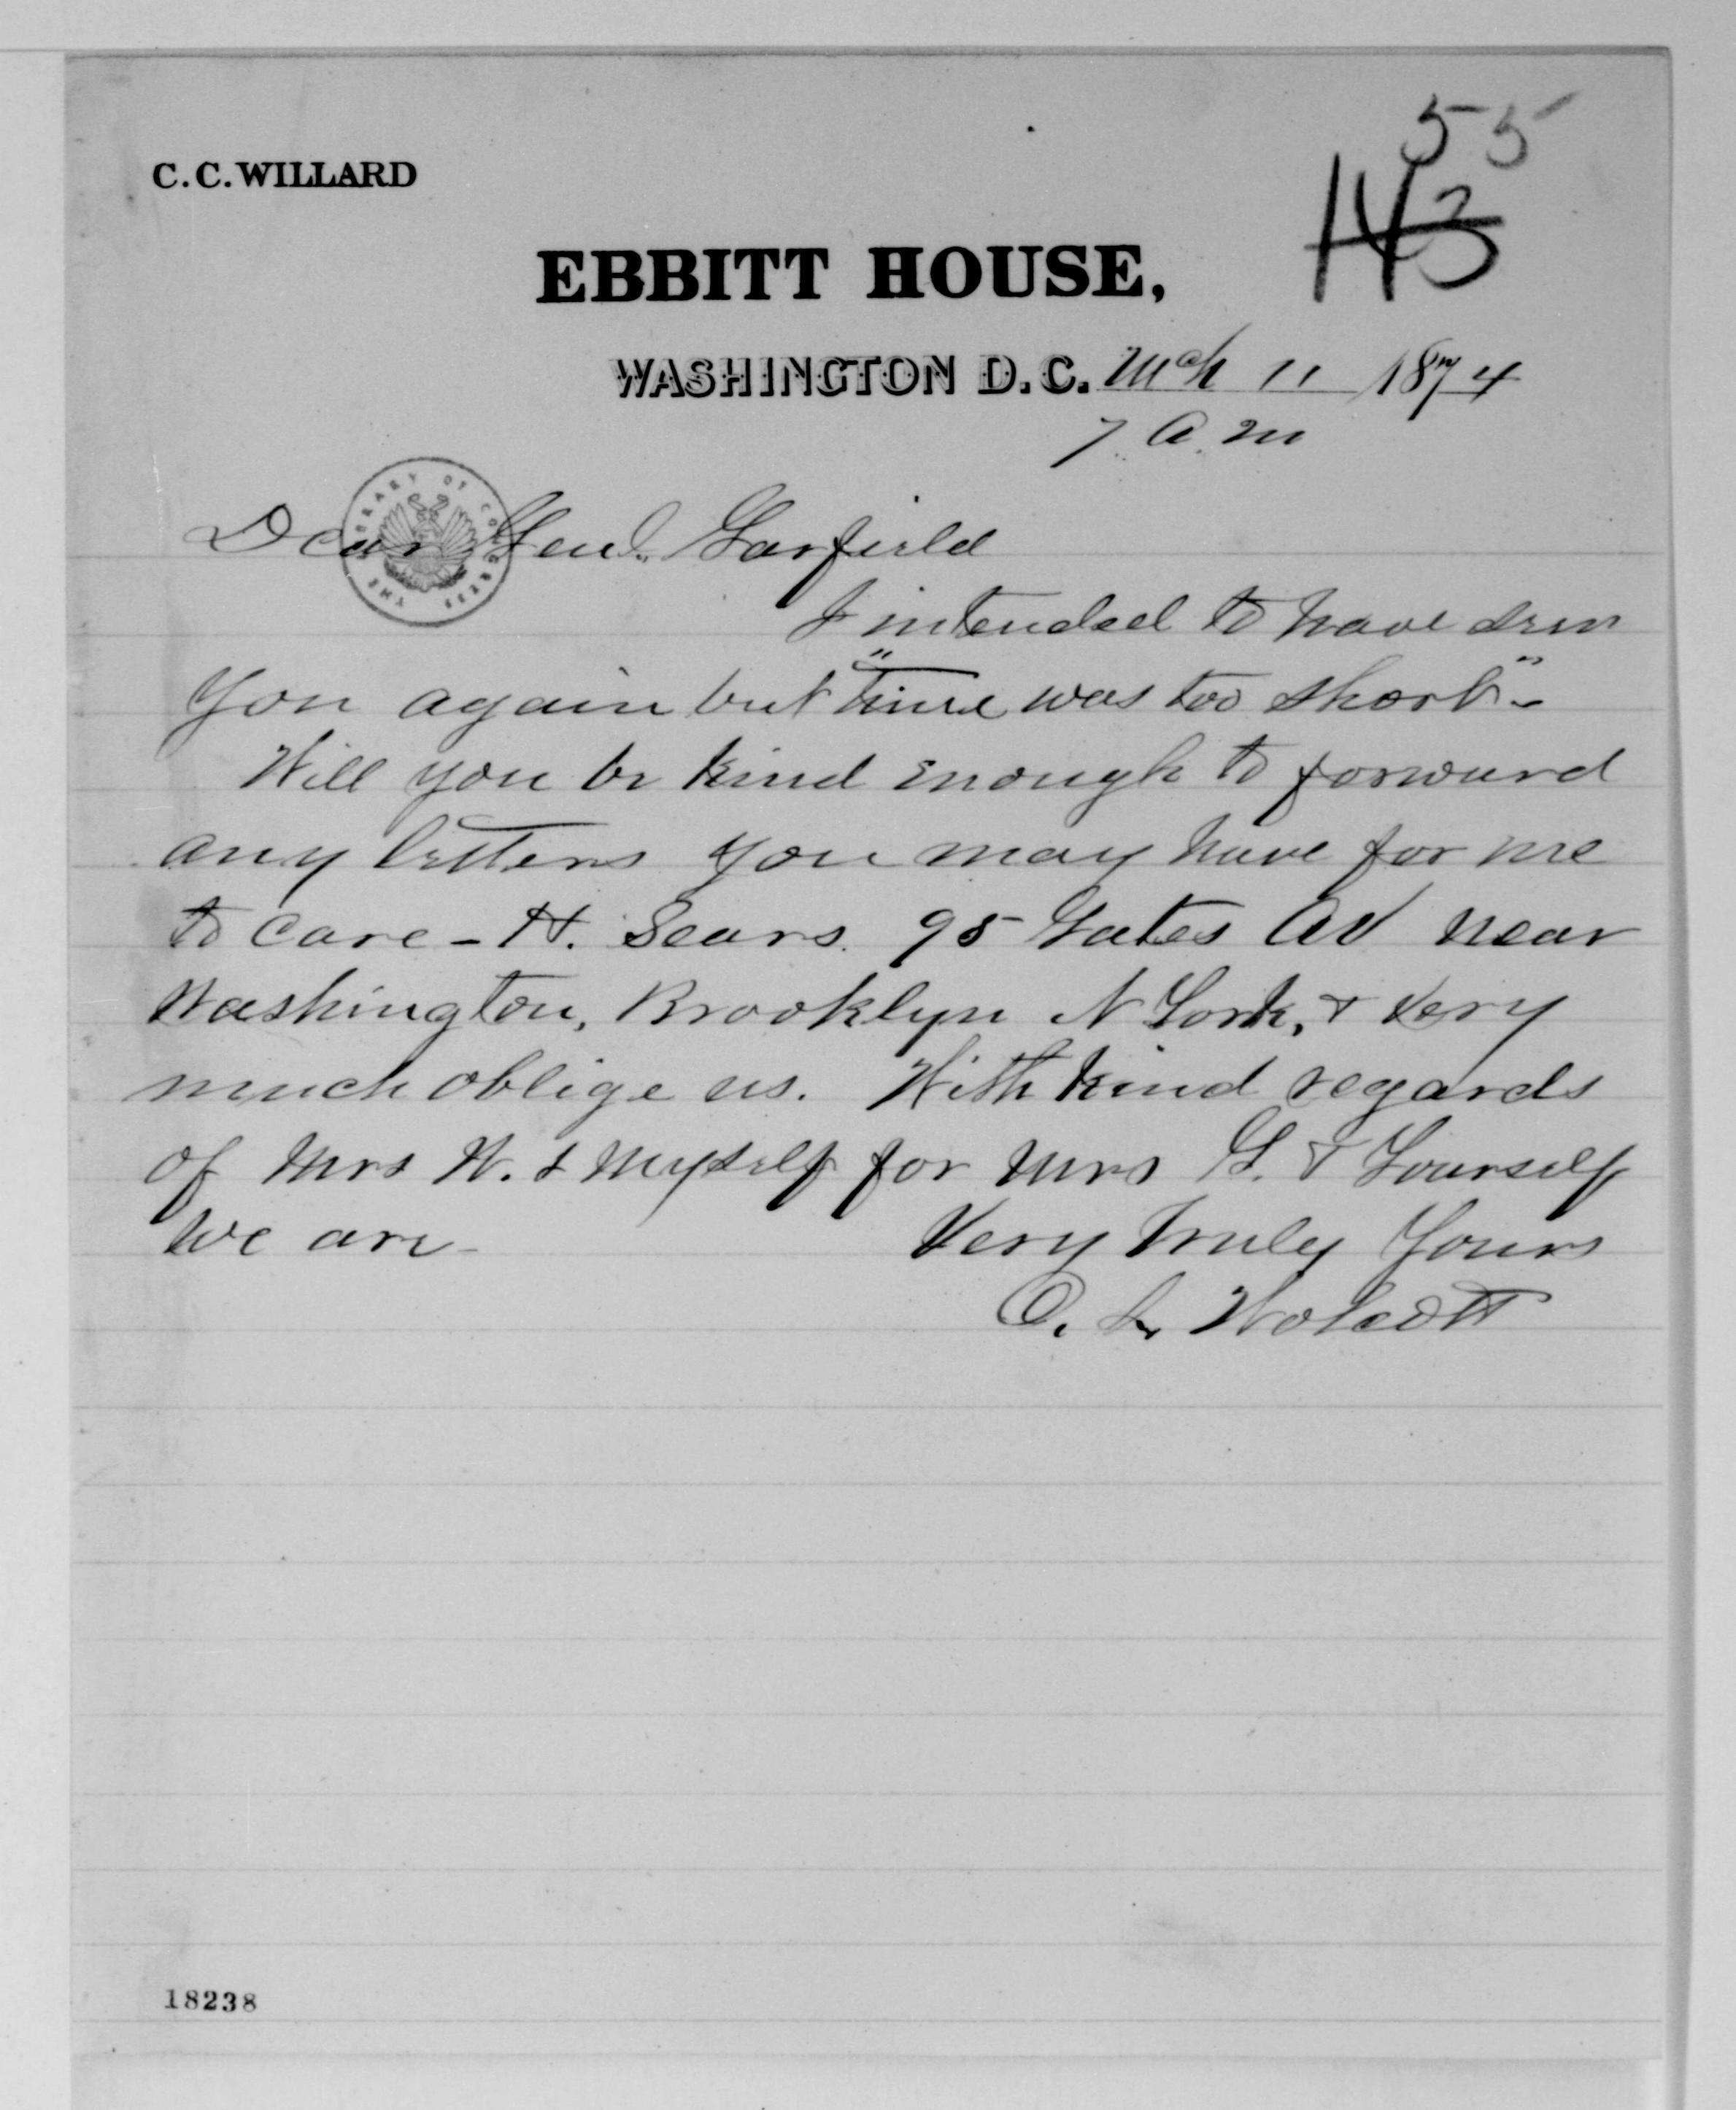 55
C.C. WILLARD
143
EBBITT HOUSE,
WASHINGTON D.C. Mch 11 1874
7. A. M
THE LIBRARY OF CONGRESS
Dear Genl. Garfield
I intended to have seen
you again but "time was too short"-
Will you be kind enough to forward
any letters you may have for me
to care - H. Sears. 95 Gates Av near
Washington, Brooklyn N York, & very
much oblige us. With kind regards
of Mrs W. & myself for Mrs G. & Yourself
We are - Very Truly Yours
O. L. Wolcott
18238